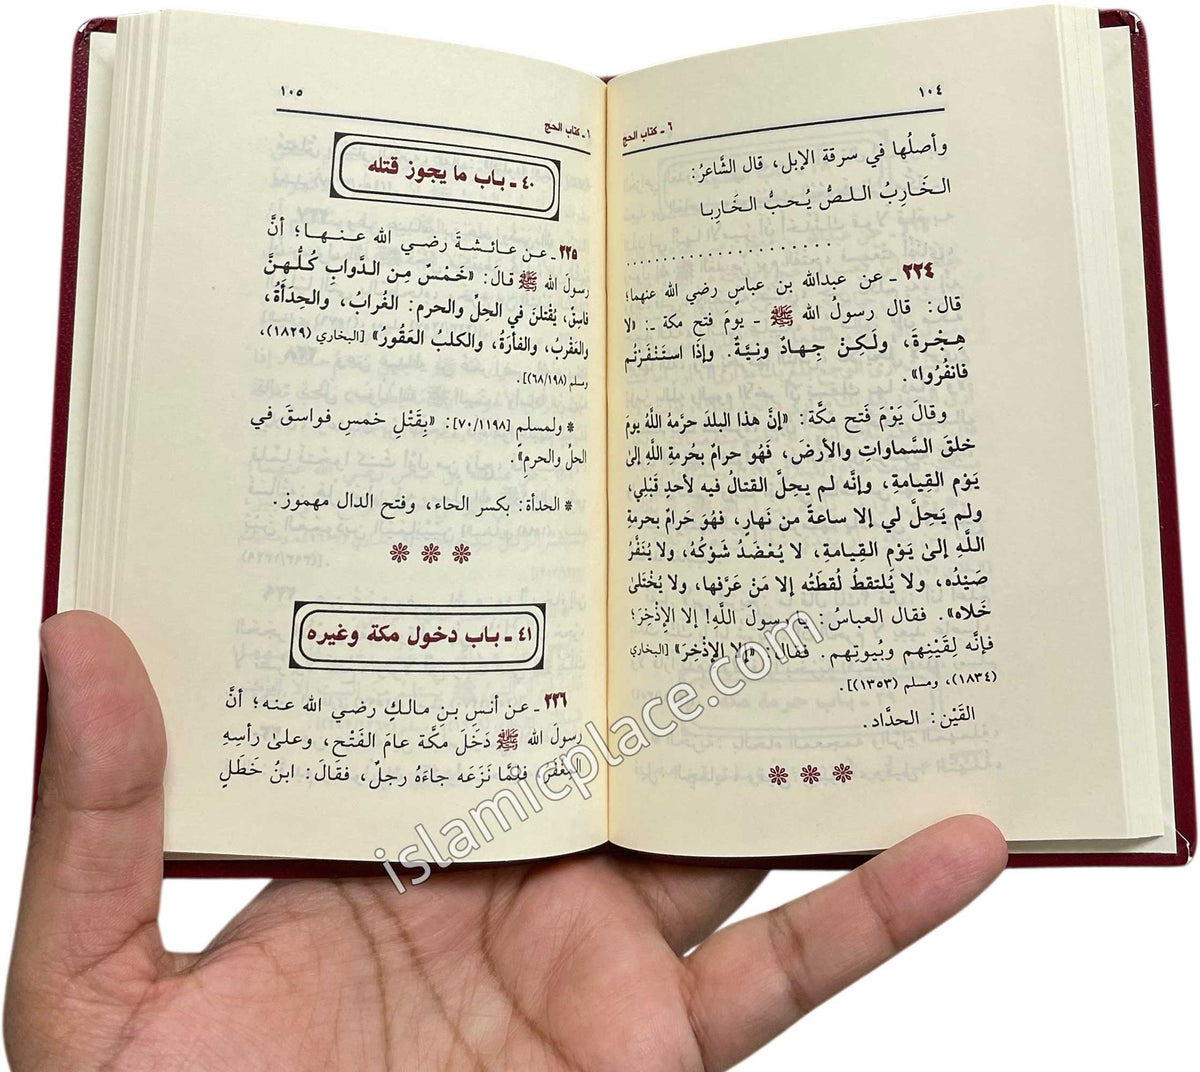 ١٠٤
٦ ـ كتاب الحج
وأصلُها في سرقة الإبل، قال الشَّاعرُ:
الـخَارِبُ الـلـصُّ يُـحـبُّ الـخَـارِبـا
. . . . . . . . . . . . . . . . . .
٢٢٤ ـ عن عبدالله بن عباسٍ رضي الله عنهما؛
قال: قال رسولُ الله ﷺ ـ يومَ فتح مكة ـ: «لا
هِجْرةَ، ولَكِنْ جِهادٌ ونِيَّةٌ. وإذَا استَنْفَرْتُم
فانفُروا».
وقالَ يَوْمَ فَتح مكَّة: «إنَّ هذا البلدَ حرَّمهُ اللَّهُ يومَ
خلقَ السَّماواتِ والأرضَ، فَهُو حرامٌ بحُرمةِ اللَّهِ إلىٰ
يَوْم القِيامةِ، وإنَّه لم يحِلَّ القتالُ فيه لأحدٍ قَبْلي،
ولم يَحِلَّ لي إلا ساعةً من نَهارٍ، فهُوَ حَرامٌ بحرمةِ
اللَّهِ إلىٰ يَوْمِ القيامةِ، لا يُعْضَدُ شَوْكُهُ، ولا يُنَفَّرُ
صَيْدُه، ولا يُلتقطُ لُقطَتُه إلا مَنْ عَرَّفها، ولا يُخْتَلىٰ
خَلاه». فقال العباسُ: يا رسولَ اللَّهِ! إلا الإذْخِرَ؛
فإنَّه لِقَيْنِهم وبُيوتِهم. فقالَ: «إلا الإذْخِرَ» [البخاري
(١٨٣٤)، ومسلم (١٣٥٣)].
القَيْن: الحدَّاد.
١٠٥
٦ ـ كتاب الحج
٤٠ ـ باب ما يجوز قتله
٢٢٥ ـ عن عائشةَ رضي الله عنها؛ أنَّ
رسولَ الله ﷺ قالَ: «خَمْسٌ مِن الدَّوابِ كُلُّهنَّ
فاسِقٌ، يُقْتلنَ في الحِلِّ والحرم: الغُرابُ، والحدَأَةُ،
والعَقْربُ، والفأرَةُ، والكلبُ العَقُورُ» [البخاري (١٨٢٩)،
ومسلم (٦٨/١٩٨)].
* ولمسلمٍ [٧٠/١١٩٨]: «بِقَتْلِ خمسِ فواسقَ في
الحلِّ والحرمِ».
* الحدأة: بكسر الحاء، وفتح الدال مهموز.
٤١ ـ باب دخول مكة وغيره
٢٢٦ ـ عن أنسِ بنِ مالكٍ رضي الله عنه؛ أنَّ
رسولَ الله ﷺ دَخَلَ مكَّة عامَ الفَتْحِ، وعلىٰ رأسِهِ
المِغْفَرُ، فلمَّا نَزَعَه جاءَهُ رجلٌ، فقالَ: ابنُ خَطَلٍ
islamicplace.com